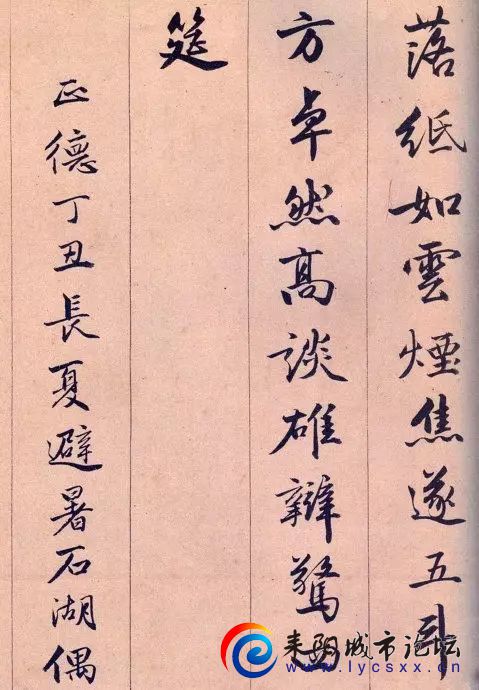 落紙如雲煙焦遂五斗
方卓然高談雄辯驚
筵
正德丁丑長夏避暑石湖偶
耒阳城市论坛
www.lycsxx.cn